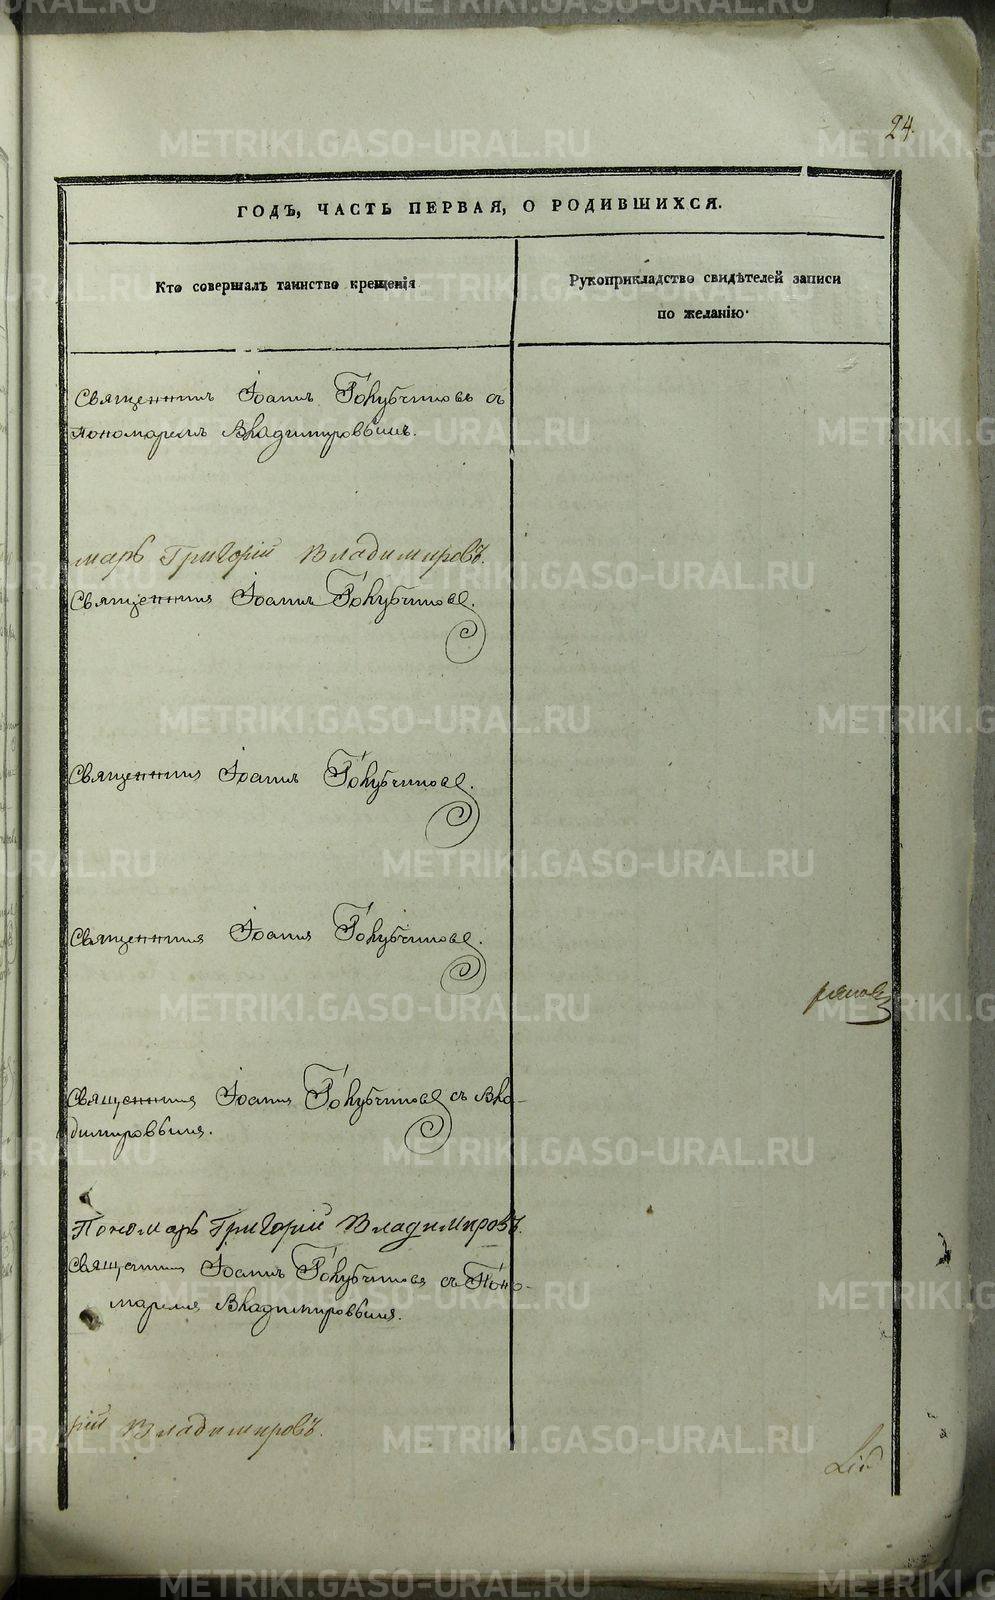 24.
ГОДЪ, ЧАСТЬ ПЕРВАЯ, О РОДИВШИХСЯ.
Кто совершалъ таинство крещенія
Рукоприкладство свидѣтелей записи
по желанію.
Священникъ Іоаннъ Голубчиковъ съ
Пономаремъ Владимировымъ.
марь Григорій Владимировъ.
Священникъ Іоаннъ Голубчиковъ.
Священникъ Іоаннъ Голубчиковъ.
Священникъ Іоаннъ Голубчиковъ.
Священникъ Іоаннъ Голубчиковъ съ Вла-
димировымъ.
Пономарь Григорій Владимировъ.
Священникъ Іоаннъ Голубчиковъ съ Поно-
маремъ Владимировымъ.
рій Владимировъ.
METRIKI.GASO-URAL.RU